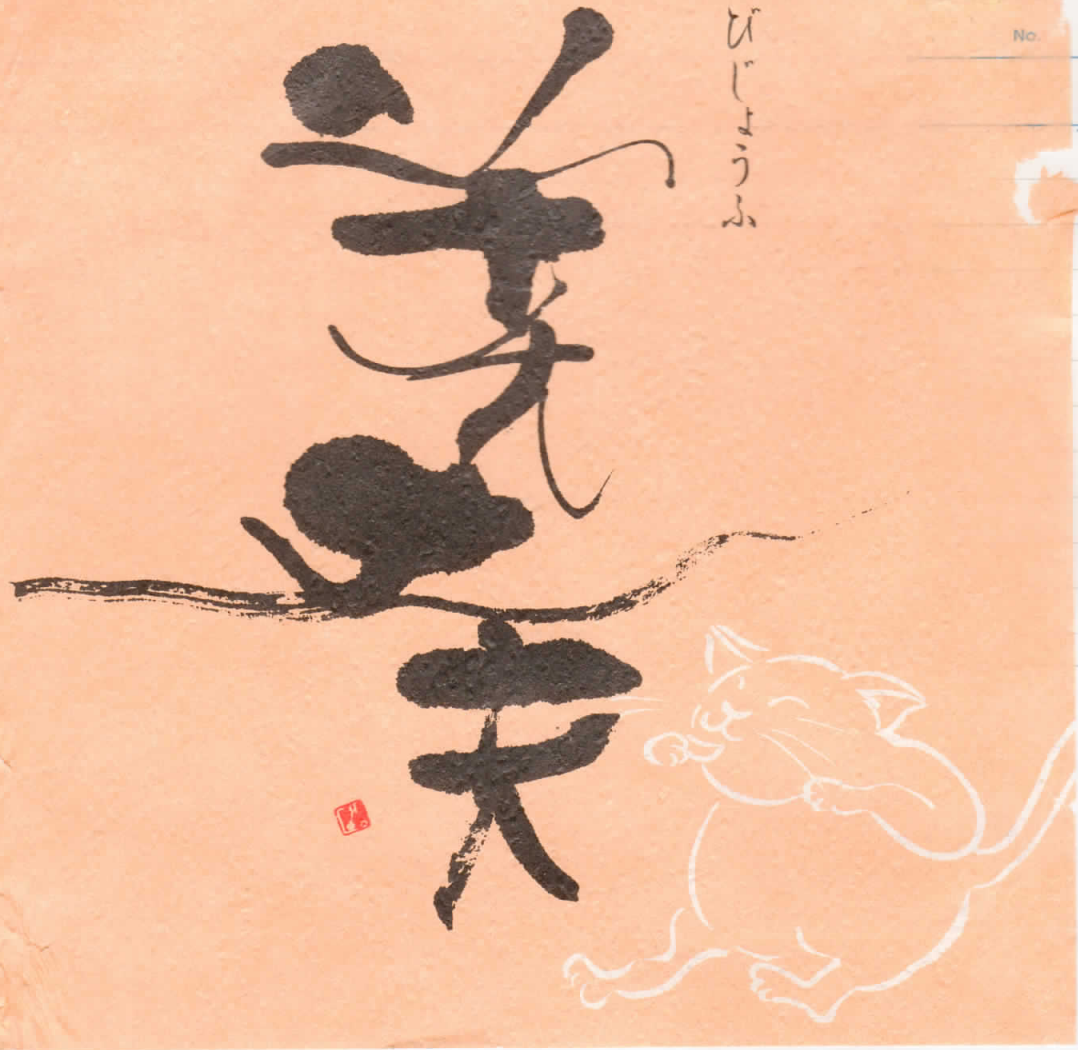 No.
びじょうふ
美丈夫